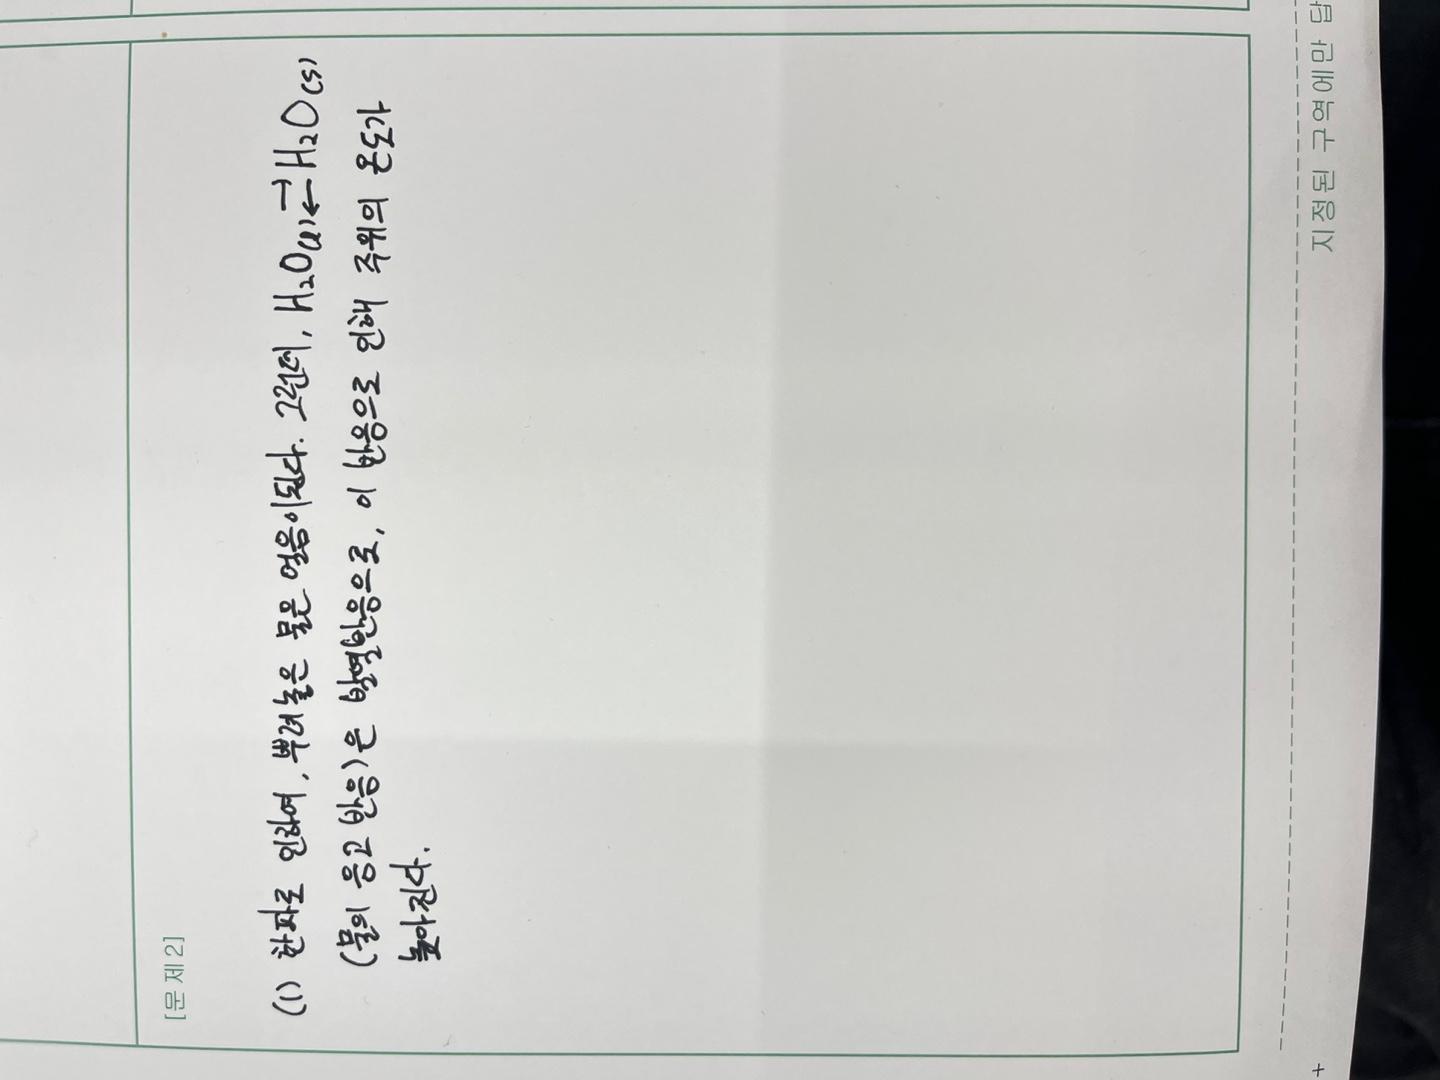 [문제2]
(1) 한파로 인하여, 뿌려놓은 물은 얼음이된다. 그런데, H₂O(l) ⇄ H₂O(s)
(물의 응고 반응)은 발열반응으로, 이 반응으로 인해 주위의 온도가
높아진다.
지정된 구역에만 답